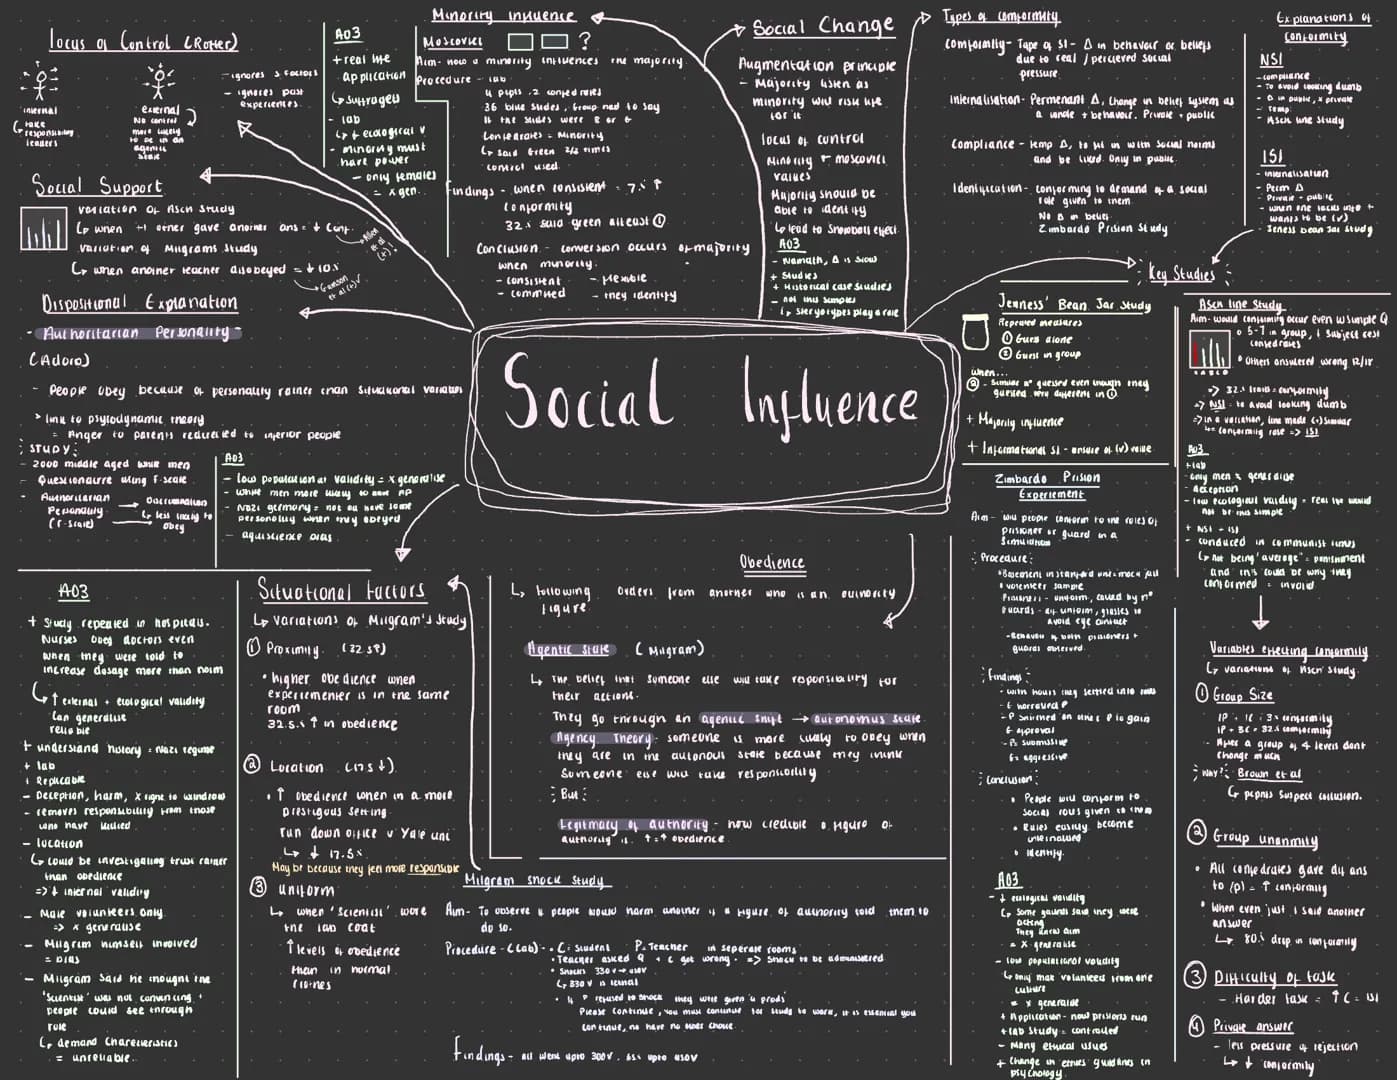 Social Influence
Locus of Control (Rotter)
internal
take
responsibility
leaders
external
No control
more likely
to be in an
agentic
state
- ignores S factors
- ignores past
experiences.
A03
+ real life
application
↳ Suffragets
- lab
↳ ↓ ecological v
- minority must
have power
- only females
= x gen.
Social Support
variation of Asch Study
↳ when +1 other gave another ans = ↓ conf.
variation of Milgrams Study
↳ when another teacher disobeyed = ↓ 10%
Dispositional Explanation
- Authoritarian Personality -
(Adoro)
- People obey because of personality rather than situational variables
> link to psycodynamic theory
= Anger to parents redirected to inferior people
STUDY:
- 2000 middle aged white men
- Questionaire using F-scale.
- Authoritarian
Personality
(F-scale)
→ Discrimination
↳ less likely to
obey
A03
- low population al validity = x generalise
- white men more likely to have AP
- Nazi germany = not all have same
personality when they obeyed
- aquiscience bias
Minority Influence
Moscovici
?
Aim- how a minority influences the majority
Procedure - lab
4 pupils, 2 confederates
36 blue slides, Group had to say
if the slides were B or G
Confederates = Minority
↳ said Green 2/3 times
control used.
Findings - when consistent = 7% ↑
conformity
32% said green atleast ①
Conclusion - conversion occurs of majority
when minority:
- consistent
- commited
- flexible
- they identify
Social Change
Augmentation principle
- Majority listen as
minority will risk life
for it
locus of control
Minority ← moscovici
values
Majority should be
able to identify
↳ lead to Snowball effect.
A03
- Namath, Δ is slow
+ Studies
+ Historical case studies
- not this simples
↳ steryotypes play a role
Types of conformity
Comformity- Type of SI - Δ in behaviour or beliefs
due to real / percieved social
pressure.
Internalisation- Permenant Δ, change in belief system as
a whole + behaviour. Private + public
Compliance - temp Δ, to fit in with social norms
and be liked. Only in public.
Identification- Conforming to demand of a social
role given to them.
No Δ in belief
Zimbardo Prision Study
Explanations of
conformity
NSI
- compliance
- To avoid looking dumb
- Δ in public, x private
- Temp
- Asch line study
ISI
- internalisation
- Perm Δ
- Private + public
- when one lacks info +
wants to be (✓)
- Jeness bean Jar Study
Key Studies
Jenness' Bean Jar Study
Repeated measures
① Guess alone
② Guess in group
when...
② - Similar n° guessed even though they
guessed very different in ①
+ Majority influence
+ Informational SI - unsure of (✓) value
Asch line Study
Aim- would conformity occur even w simple Q
• 5-7 in group, 1 Subject rest
confederates
• Others answered wrong 12/18
=> 32% trails = conformity
=> NSI - to avoid looking dumb
=> in a variation, line made (+) similar
↳ conformity rose => ISI
A03
+ lab
- only men x generalise
- deception
- low ecological validity = real life would
not be this simple
+ NSI + ISI
- conduced in communist times
↳ not being "average" = punishment
and this could be why they
conformed = invalid
Zimbardo Prision
Experiement
Aim - will people conform to the roles of
prisioner or guard in a
simulation
Procedure:
• Basement in stanford uni = mock jail
• volunteer sample
Prisioners - uniform, called by n°
Guards - dif uniform, glasses to
avoid eye contact
- Behavior of both prisioners +
guards observed.
Findings:
- within hours they settled into roles
- G harrased P
- P snitched on other P to gain
G approval
- P = submissive
G = aggressive
Conclusion:
• People will conform to
social rolls given to them
• Roles easily become
internalised
• Identify.
A03
- ↓ ecological validity
↳ Some gaurds said they were
acting
They knew aim
= x generalise
- low populational validity
↳ only male volunteers from one
culture
= x generalise
+ Application - how prisions run
+ lab study = controlled
- Many ethical issues
+ Change in ethics guidlines in
psychology.
Variables effecting conformity
↳ variations of Asch Study.
① Group Size
1P + 1C = 3% conformity
1P + 3C = 32% conformity
- After a group of 4 levels dont
change much
WHY? Brown et al
↳ ppants suspect collusion.
② Group unanimity
• All confedrates gave dif ans
to (p) = ↑ conformity
• When even just 1 said another
answer
↳ 80% drop in conformity
③ Difficulty of task
- Harder task = ↑ C = ISI
④ Private answer
- less pressure of rejection
↳ ↓ conformity
A03
+ Study repeated in hospitals.
Nurses obeg doctors even
when they were told to
increase dosage more than norm
↳ ↑ external + ecological validity
can generalise
reliable
+ understand history = Nazi regime
+ lab
+ Replicable
- Deception, harm, x right to withdraw
- removes responsibility from those
who have killed
- location
↳ could be investigating trust rather
than obedience
=> ↓ internal validity
- Male volunteers only
=> x generalise
- Milgrim himself involved
= bias
- Milgram said he thought the
'Scientist' was not convincing +
people could see through
role
↳ demand Charecteristics
= unreliable.
Situational factors
↳ Variations of Milgram's Study
① Proximity. (32.5↑)
• higher obedience when
experiementer is in the same
room
32.5% ↑ in obedience
② Location (17.5↓)
• ↑ obedience when in a more
prestigous setting.
run down office v Yale uni
↳ ↓ 17.5%
May be because they feel more responsible
③ uniform
↳ when 'scientist' wore
the lab coat
↑ levels of obedience
than in normal
clothes
Obedience
↳ following orders from another who is an authority
figure.
Agentic State (Milgram)
↳ the belief that someone else will take responsibility for
their actions.
They go through an agentic shift → autonomus state.
Agency Theory - someone is more likely to obey when
they are in the autonous state because they think
someone else will take responsibility
But:
Legitmacy of authority - how credible a figure of
authority is. ↑=↑ obedience.
Milgram shock study
Aim- To observe if people would harm another if a figure of authority told them to
do so.
Procedure - (lab) - • C = Student P = Teacher in seperate rooms.
• Teacher asked Q + C got wrong. => shock to be administered
• Shocks 330 v → 450v
↳ 330 v is lethal
• if P refused to shock they were given 4 prods
Please continue, You must continue for study to work, it is essential you
continue, no have no other choice.
Findings - all went upto 300v. 65% upto 450v